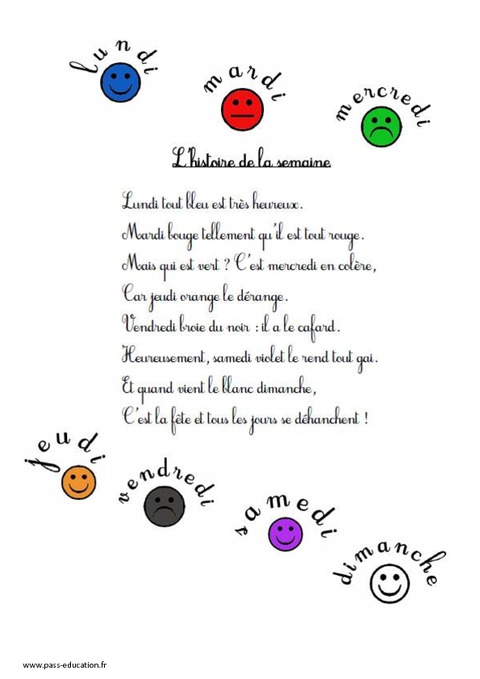 lundi
mardi
mercredi
L'histoire de la semaine
Lundi tout bleu est très heureux.
Mardi bouge tellement qu'il est tout rouge.
Mais qui est vert ? C'est mercredi en colère,
Car jeudi orange le dérange.
Vendredi broie du noir : il a le cafard.
Heureusement, samedi violet le rend tout gai.
Et quand vient le blanc dimanche,
C'est la fête et tous les jours se déhanchent !
jeudi
vendredi
samedi
dimanche
www.pass-education.fr